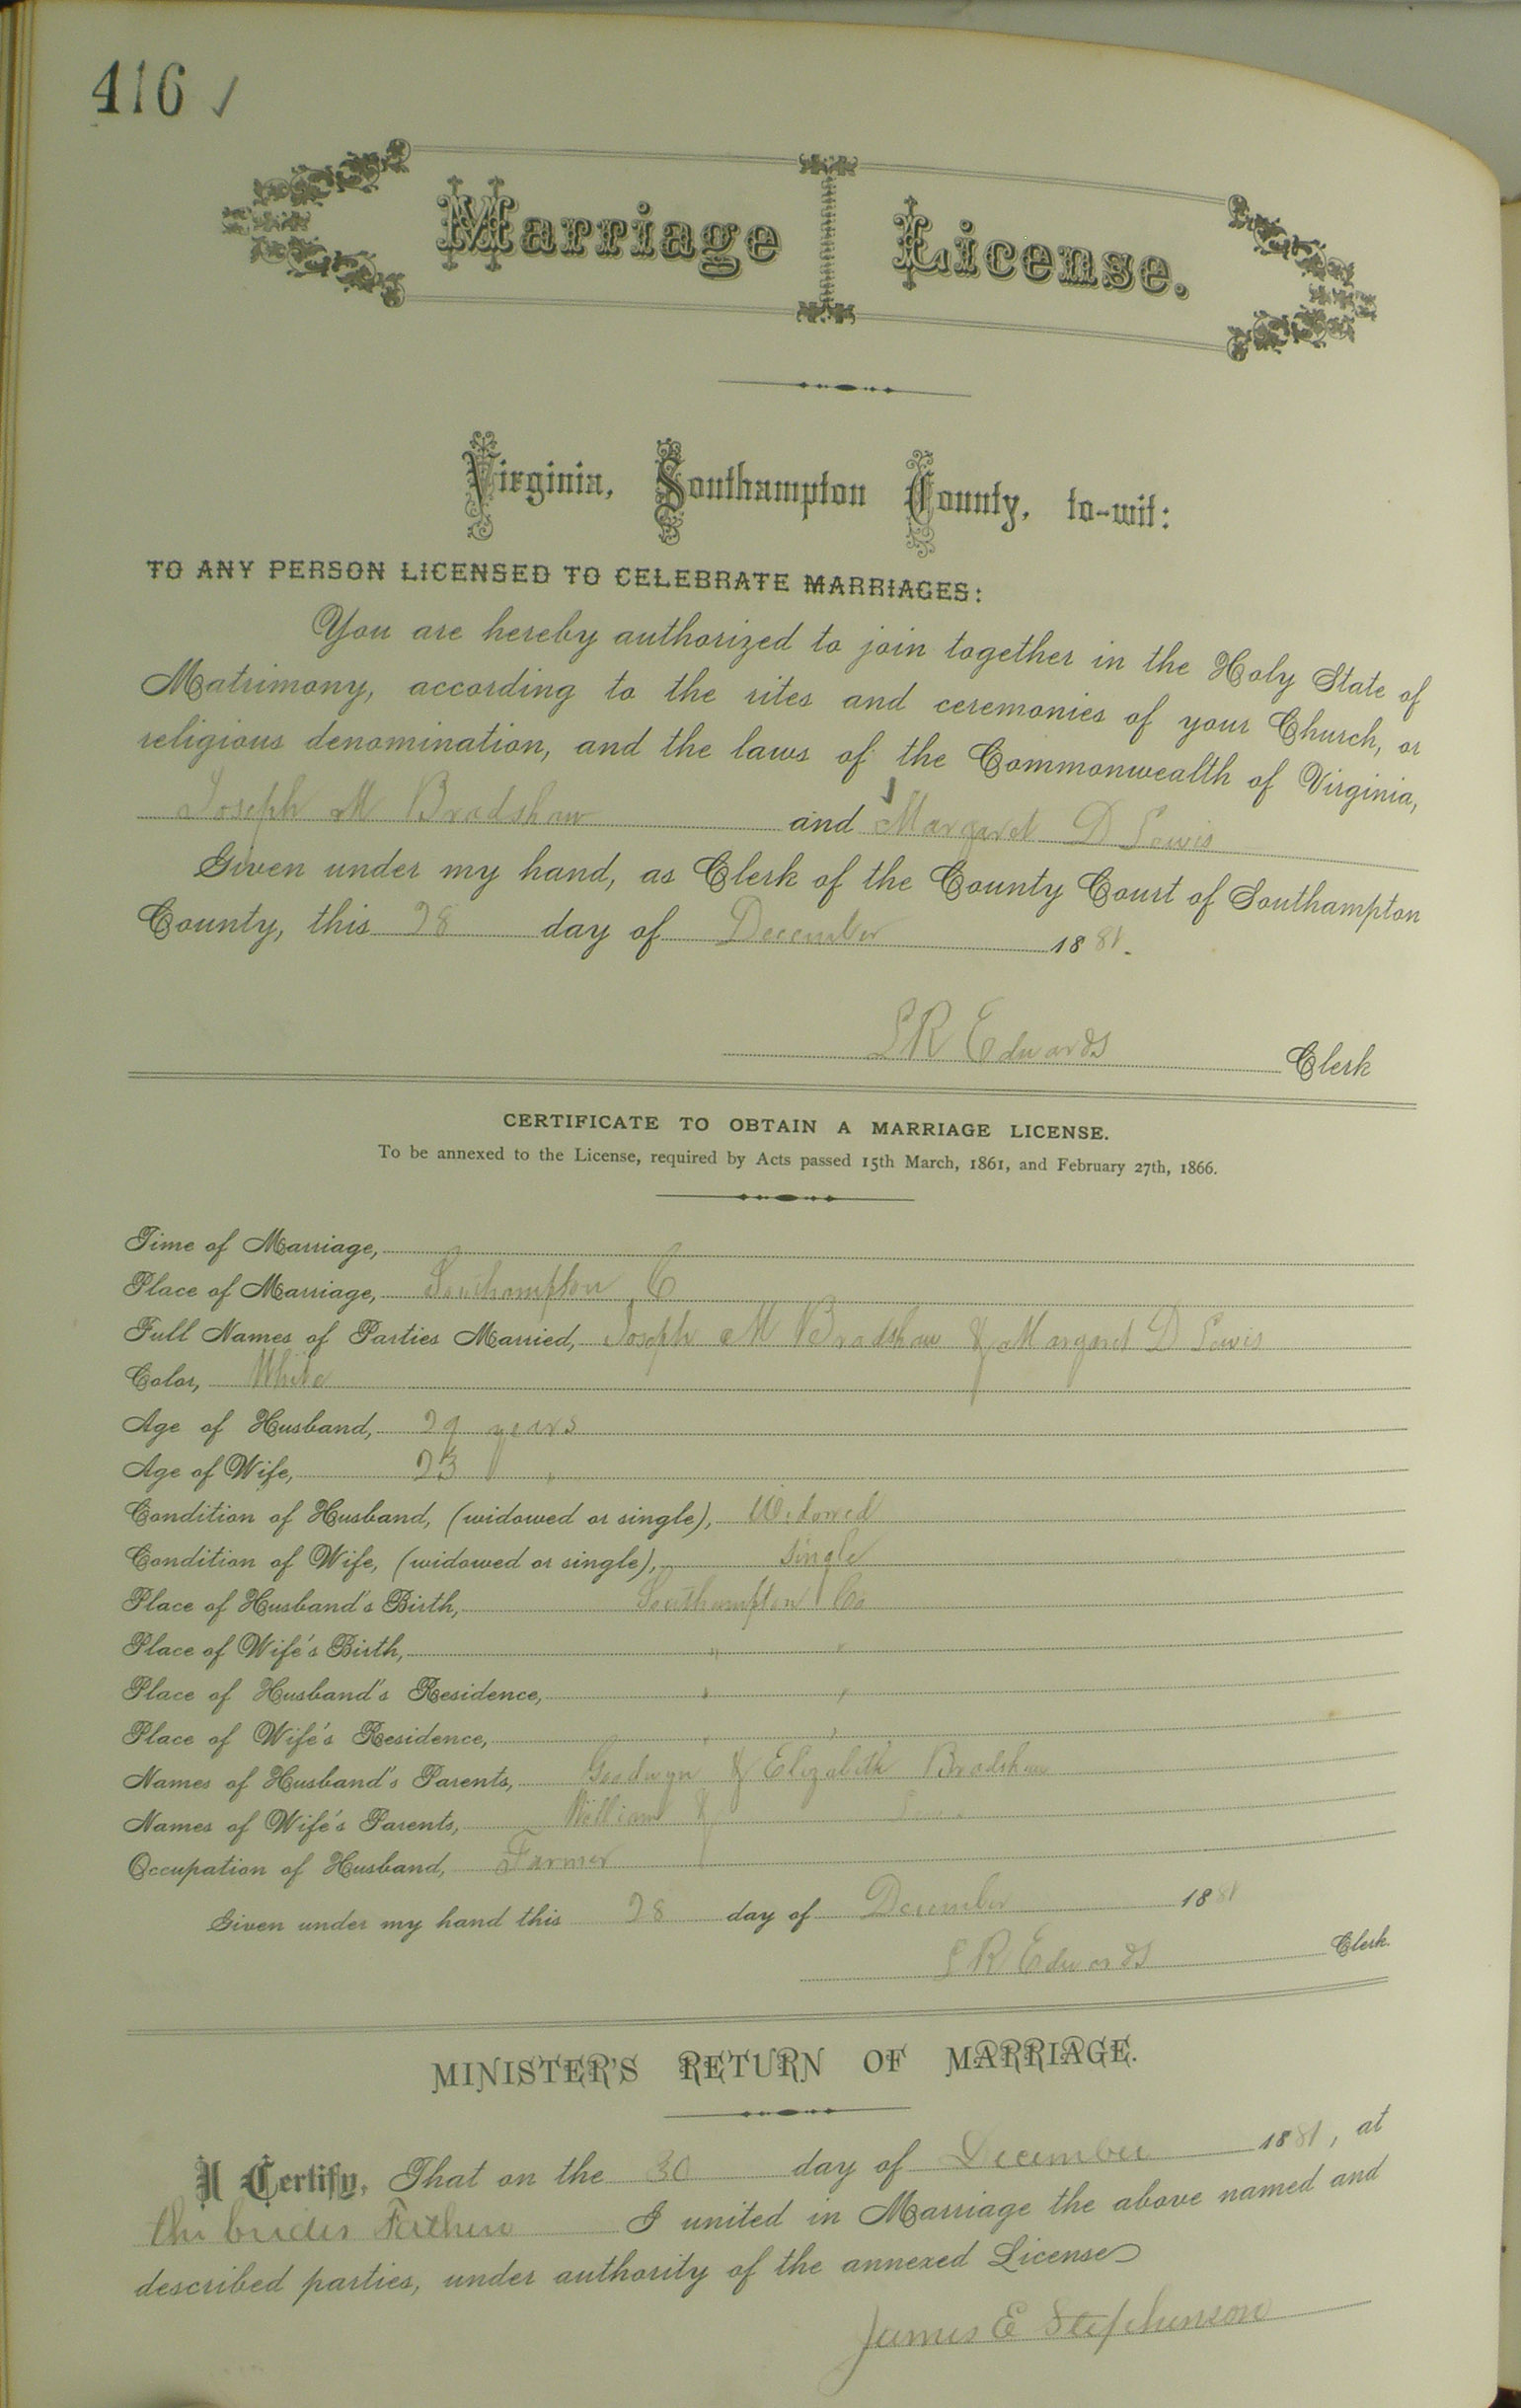 416 ✓
Marriage License.
Virginia, Southampton County, to-wit:
TO ANY PERSON LICENSED TO CELEBRATE MARRIAGES:
You are hereby authorized to join together in the Holy State of
Matrimony, according to the rites and ceremonies of your Church, or
religious denomination, and the laws of the Commonwealth of Virginia,
Joseph M Bradshaw and Margaret D Lewis
Given under my hand, as Clerk of the County Court of Southampton
County, this 28 day of December 1881.
L R Edwards Clerk
CERTIFICATE TO OBTAIN A MARRIAGE LICENSE.
To be annexed to the License, required by Acts passed 15th March, 1861, and February 27th, 1866.
Time of Marriage,
Place of Marriage, Southampton C
Full Names of Parties Married, Joseph M Bradshaw & Margaret D Lewis
Color, White
Age of Husband, 29 years
Age of Wife, 23 "
Condition of Husband, (widowed or single), Widowed
Condition of Wife, (widowed or single), Single
Place of Husband's Birth, Southampton Co
Place of Wife's Birth, " "
Place of Husband's Residence, " "
Place of Wife's Residence, " "
Names of Husband's Parents, Goodwyn & Elizabeth Bradshaw
Names of Wife's Parents, William & Lewis
Occupation of Husband, Farmer
Given under my hand this 28 day of December 1881
L R Edwards Clerk.
MINISTER'S RETURN OF MARRIAGE.
I Certify, That on the 30 day of December 1881, at
the brides Fathers I united in Marriage the above named and
described parties, under authority of the annexed License
James E Stephenson